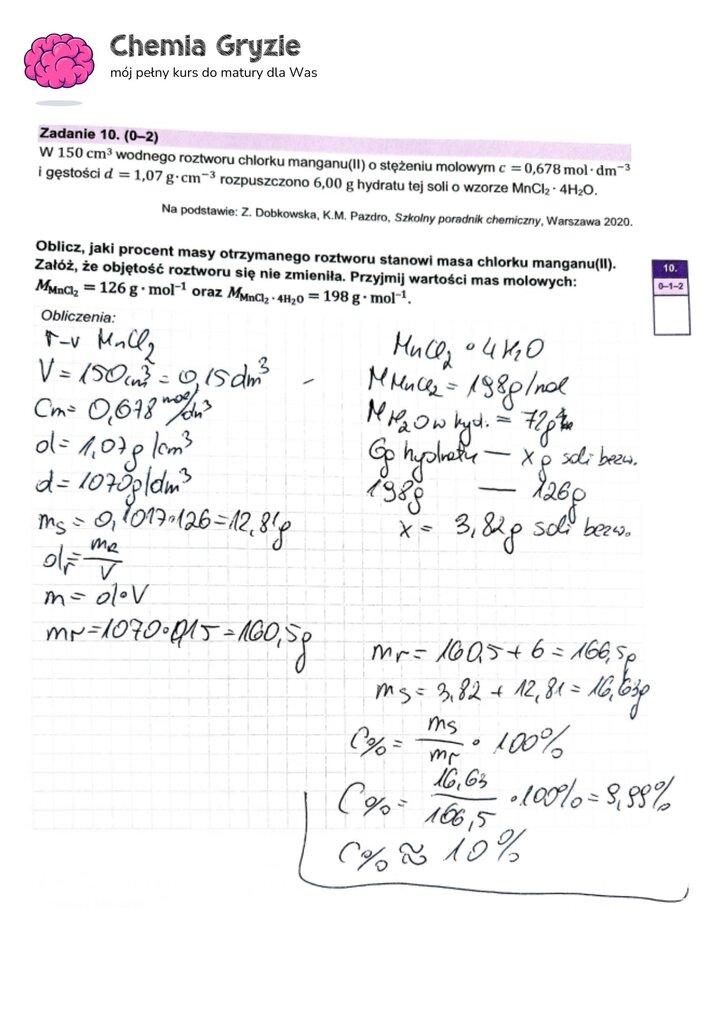 Chemia Gryzie
mój pełny kurs do matury dla Was
Zadanie 10. (0–2)
W 150 cm³ wodnego roztworu chlorku manganu(II) o stężeniu molowym c = 0,678 mol · dm⁻³
i gęstości d = 1,07 g · cm⁻³ rozpuszczono 6,00 g hydratu tej soli o wzorze MnCl₂ · 4H₂O.
Na podstawie: Z. Dobkowska, K.M. Pazdro, Szkolny poradnik chemiczny, Warszawa 2020.
Oblicz, jaki procent masy otrzymanego roztworu stanowi masa chlorku manganu(II).
Załóż, że objętość roztworu się nie zmieniła. Przyjmij wartości mas molowych:
M_MnCl₂ = 126 g · mol⁻¹ oraz M_MnCl₂ · 4H₂O = 198 g · mol⁻¹.
10.
0–1–2
Obliczenia:
r-r MnCl₂
V = 150cm³ = 0,15dm³
Cm = 0,678 mol/dm³
d = 1,07g/cm³
d = 1070g/dm³
ms = 0,1017·126 = 12,81g
dr = mr/V
m = d·V
mr = 1070·0,15 = 160,5g
MnCl₂ · 4H₂O
M MnCl₂ = 198g/mol
M H₂O w hyd. = 72g
6g hydratu — x g soli bezw.
198g — 126g
x = 3,82g soli bezw.
mr = 160,5 + 6 = 166,5g
ms = 3,82 + 12,81 = 16,63g
C% = ms/mr · 100%
C% = 16,63/166,5 · 100% = 9,99%
C% ≈ 10%